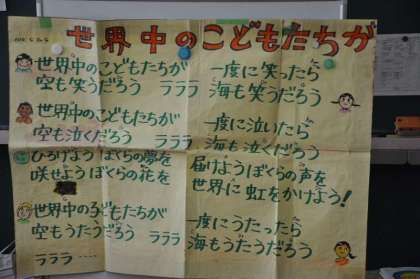 世界中のこどもたちが
世界中のこどもたちが 一度に笑ったら
空も笑うだろう ラララ 海も笑うだろう
世界中のこどもたちが 一度に泣いたら
空も泣くだろう ラララ 海も泣くだろう
ひろげよう ぼくらの夢を 届けようぼくらの声を
咲せようぼくらの花を 世界に虹をかけよう!
世界中の子どもたちが 一度にうたったら
空もうたうだろう ラララ 海もうたうだろう
ラララ ‥‥‥